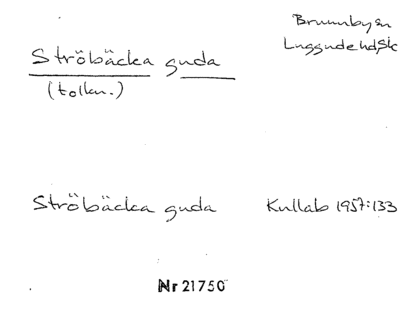 Brunnby sn
Luggude hd Sk
Ströbäcka guda
(tolkn.)
Ströbäcka guda Kullab 1957:133
Nr 21750